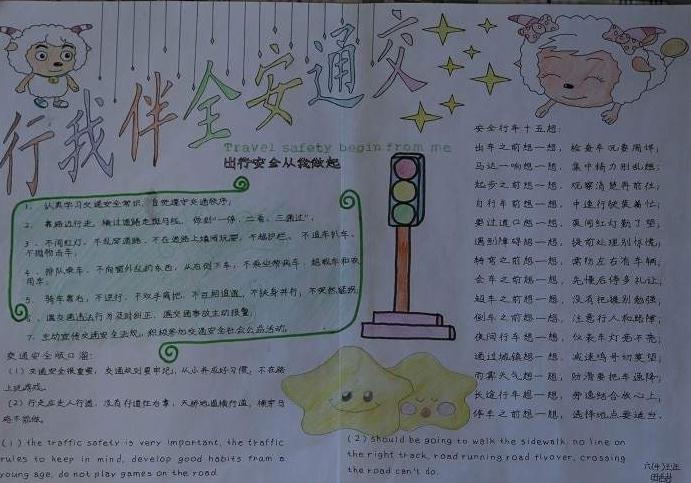 交通安全伴我行
Travel safety begin from me
出行安全从我做起
1、认真学习交通安全常识，自觉遵守交通秩序；
2、靠路边行走，横过道路走斑马线，做到“一停、二看、三通过”，
3、不闯红灯、不乱穿道路、不在道路上嬉闹玩耍，不越护栏、不追车扒车、
不抛物击车；
4、排队乘车、不向窗外乱扔东西，从右侧下车，不乘坐带病车、超载车和农
用车；
5、骑车靠右，不逆行，不双手离把，不互相追逐，不扶身并行，不突然猛拐；
遇交通违法行为及时纠正，遇交通事故主动报警；
7、主动宣传交通安全法规，积极参加交通安全社会公益活动。
交通安全顺口溜：
(1)交通安全很重要，交通规则要牢记，从小养成好习惯，不在路
上玩游戏。
(2)行走应走人行道，没有行道往右靠，天桥地道横行道，横穿马
路不能做。
(1) the traffic safety is very important, the traffic
rules to keep in mind, develop good habits from a
young age, do not play games on the road.
(2) should be going to walk the sidewalk, no line on
the right track, road running road flyover, crossing
the road can't do.
安全行车十五想：
出车之前想一想，检查车况要周详；
马达一响想一想，集中精力别乱想；
起步之前想一想，观察清楚再前往；
自行车前想一想，中速行驶莫着忙；
要过道口想一想，莫闯红灯勤了望；
遇到障碍想一想，提前处理别惊慌；
转弯之前想一想，需防左右有车辆；
会车之前想一想，先慢后停多礼让；
超车之前想一想，没有把握别勉强；
倒车之前想一想，注意行人和路障；
夜间行车想一想，仪表车灯亮不亮；
通过城镇想一想，减速鸣号切莫望；
雨雾天气想一想，防滑要把车速降；
长途行车想一想，劳逸结合放心上；
停车之前想一想，选择地点要适当。
六(4)班